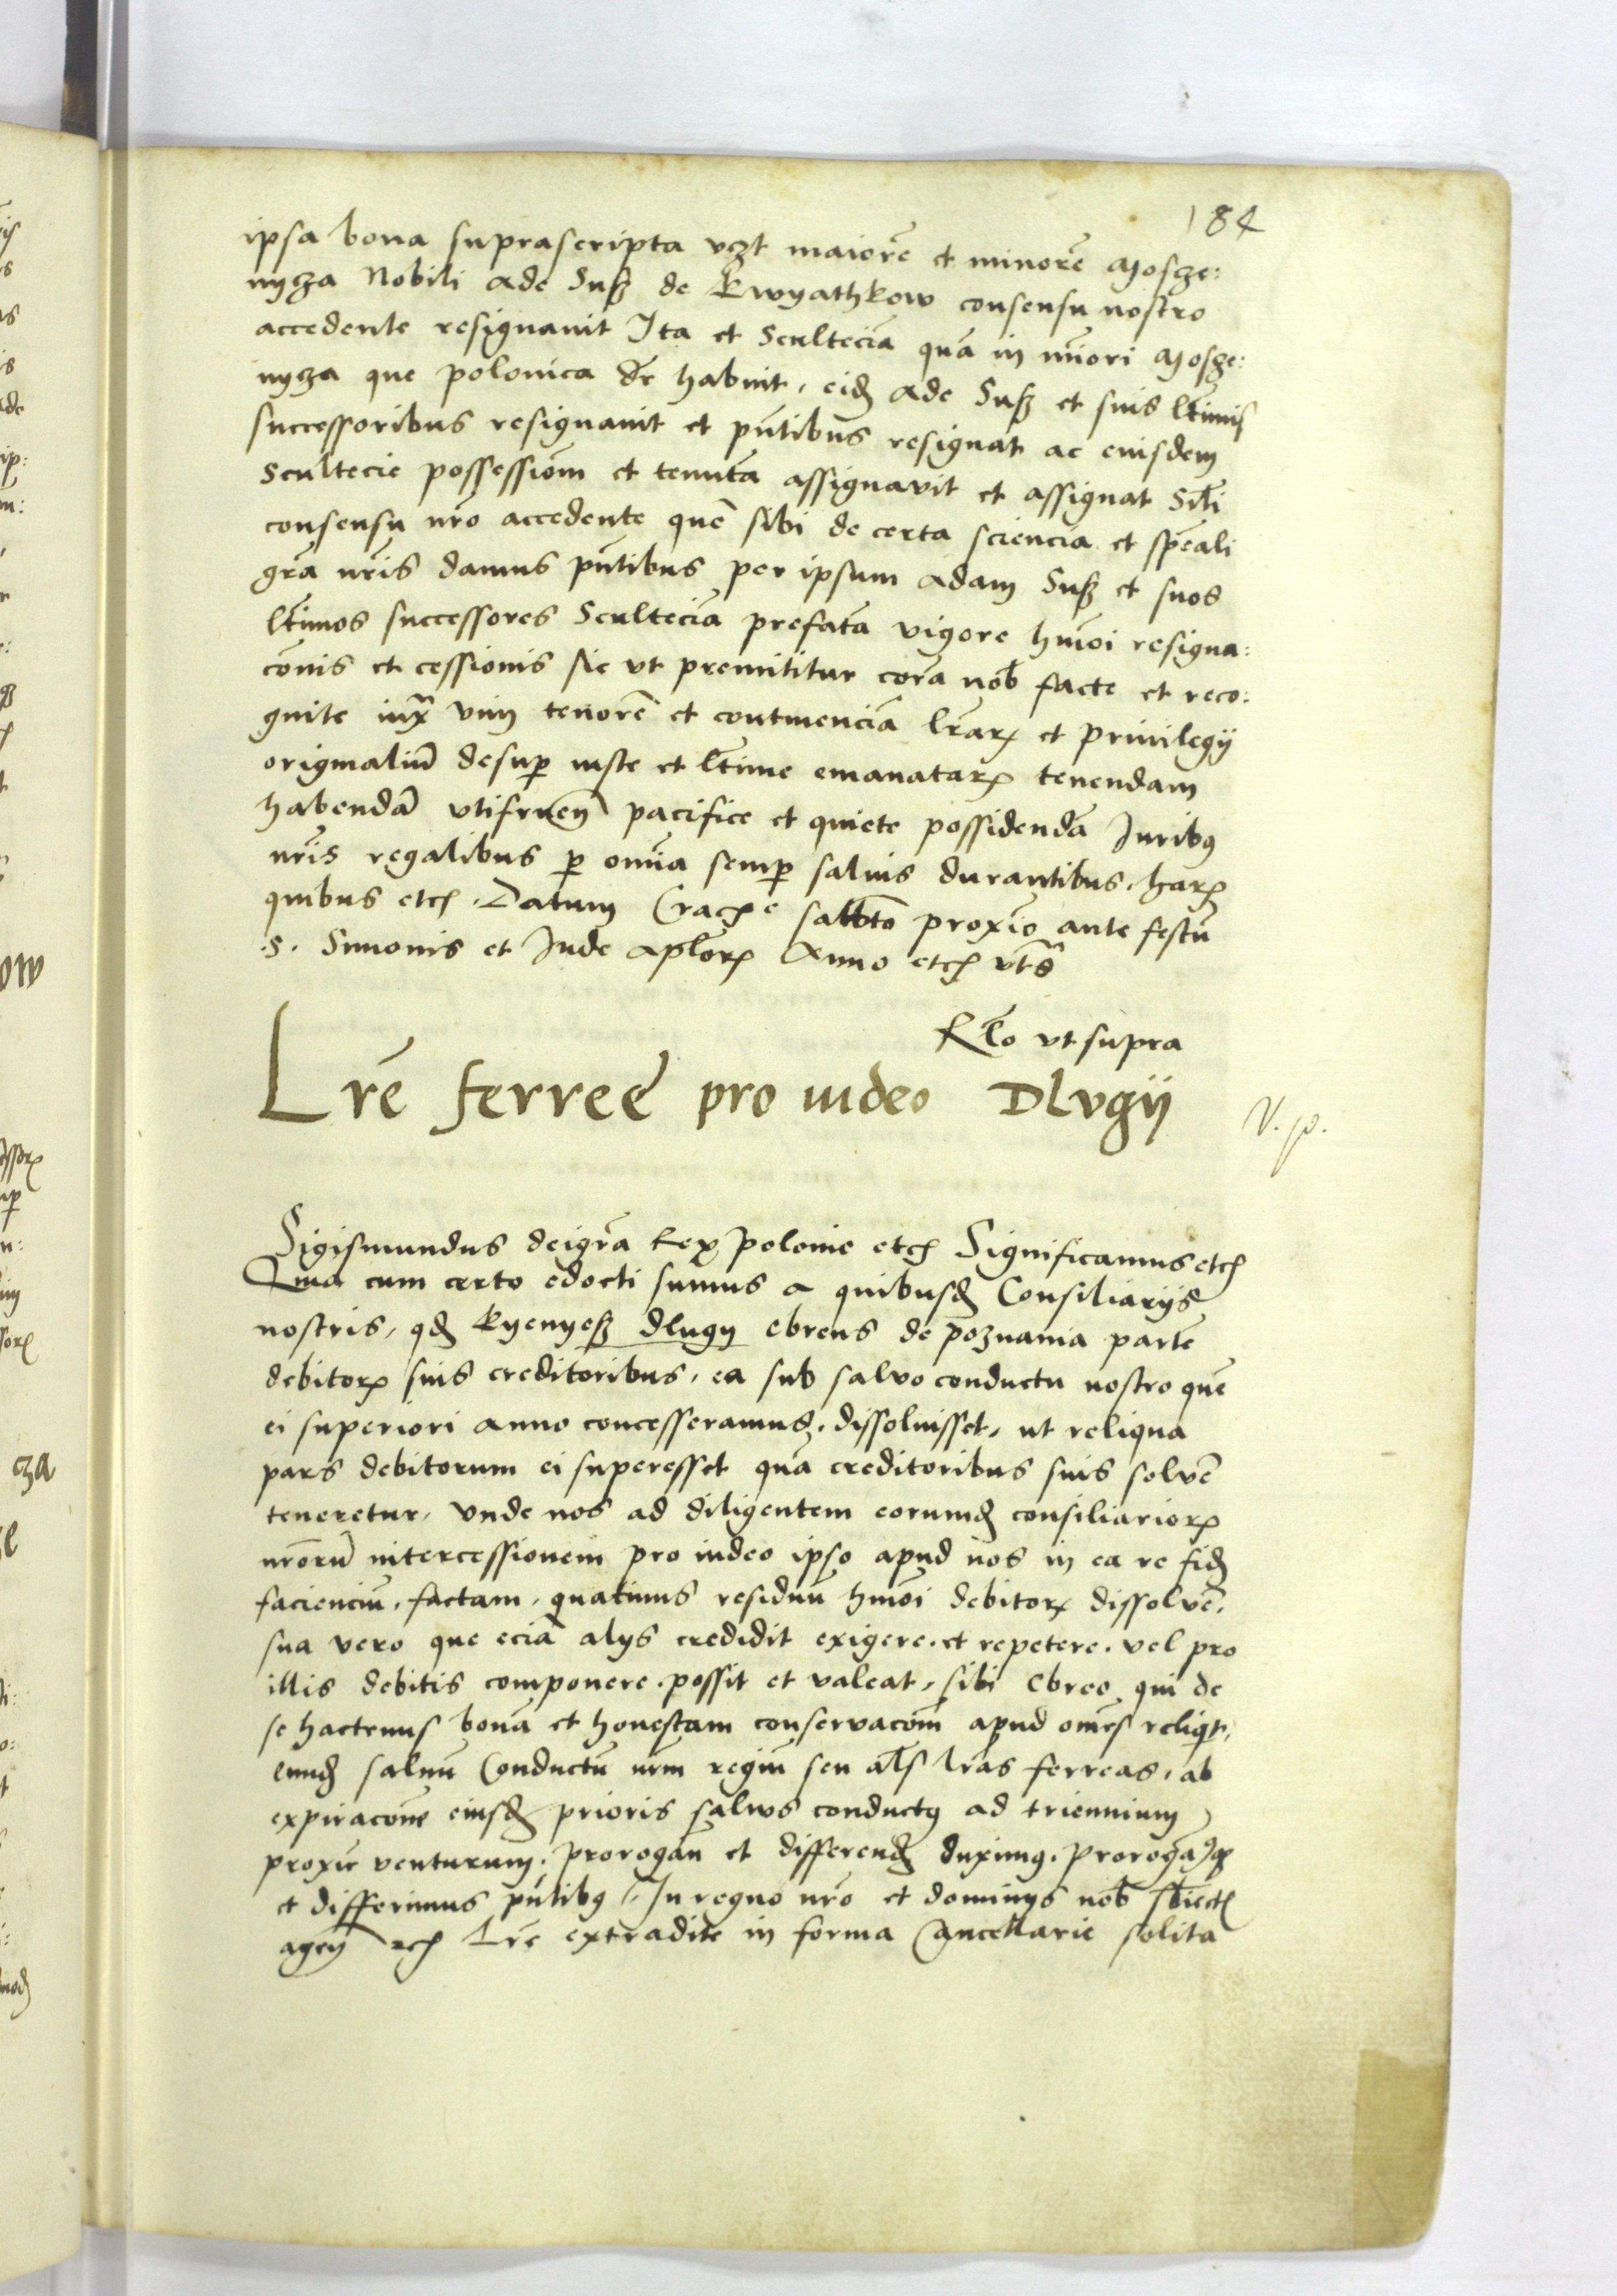 184
ipsa bona suprascripta vczt maiorē et minorē Mosche:
nycza Nobili Ade Suß de Kwyathkow consensu nostro
accedente resignauit Ita et Sculteciā quā in mīori Mosche:
nycza que polonica dr̄ habuit, eidē Ade Suß et suis ltīmis
successoribus resignauit et pn̄tibus resignat ac eiusdem
Scultecie possessiom̄ et tenutā assignavit et assignat Sibi
consensu nr̄o accedente quē sibi de certa sciencia et spēali
gr̄a nr̄is damus pn̄tibus per ipsum Adam Suß et suos
ltīmos successores Sculteciā prefatā vigore hmōi resigna:
cōnis et cessionis sic ut premititur corā nob̄ facte et reco:
gnite iuxͣ vim tenorē et continenciā lr̄aꝝ et priuilegij
originaliū desuꝑ iuste et ltīme emanataꝝ tenendam
habendā utifruen̄ pacifice et quiete possidendā Iuribꝰ
nr̄is regalibus ꝑ omnīa semꝑ saluis durantibus. haꝝ
quibus etc̄. Datum Cracoꝛͤ sabbt̄o proxīo ante festū
.S. Simonis et Iude Apl̄oꝝ Anno etc̄ vtsͣ
Rl̄o ut supra
Lr̄e ferree pro iudeo Dlvgij
V. p.
Sigismundus dei gr̄a Rex Polonie etc̄ Significamus etc̄
Quia cum certo edocti sumus a quibusd̄ Consiliarijs
nostris, qd̄ Kyenyeß dlugy ebreus de poznania partē
debitoꝝ suis creditoribus, ea sub salvo conductu nostro quē
ei superiori anno concesseramus, dissoluisset, ut reliqua
pars debitorum ei superesset quā creditoribus suis solvē
teneretur, Vnde nos ad diligentem eorumd̄ consiliarioꝝ
nr̄orū intercessionem pro iudeo ipso apud nos in ea re fid̄
facienciū, factam, quatinus residuū hmōi debitoꝝ dissolvē,
sua vero que eciā alys credidit exigere, et repetere, vel pro
illis debitis componere possit et valeat, sibi ebreo qui de
se hactenus bonā et honestam conservacōm apud om̄es reliqt,
eund̄ saluū Conductū nr̄m regiū seu al̄s lr̄as ferreas, ab
expiracōne eiusd̄ prioris salvos conductꝰ ad triennium
proxīe venturum, prorogan̄ et differend̄ duximꝰ, prorogāꝰqꝫ
et differimus pn̄tibꝰ, In regno nr̄o et dominijs nob̄ sb̄iectꝭ
ageṅ etc̄ Lr̄e extradite in forma Cancellarie solita